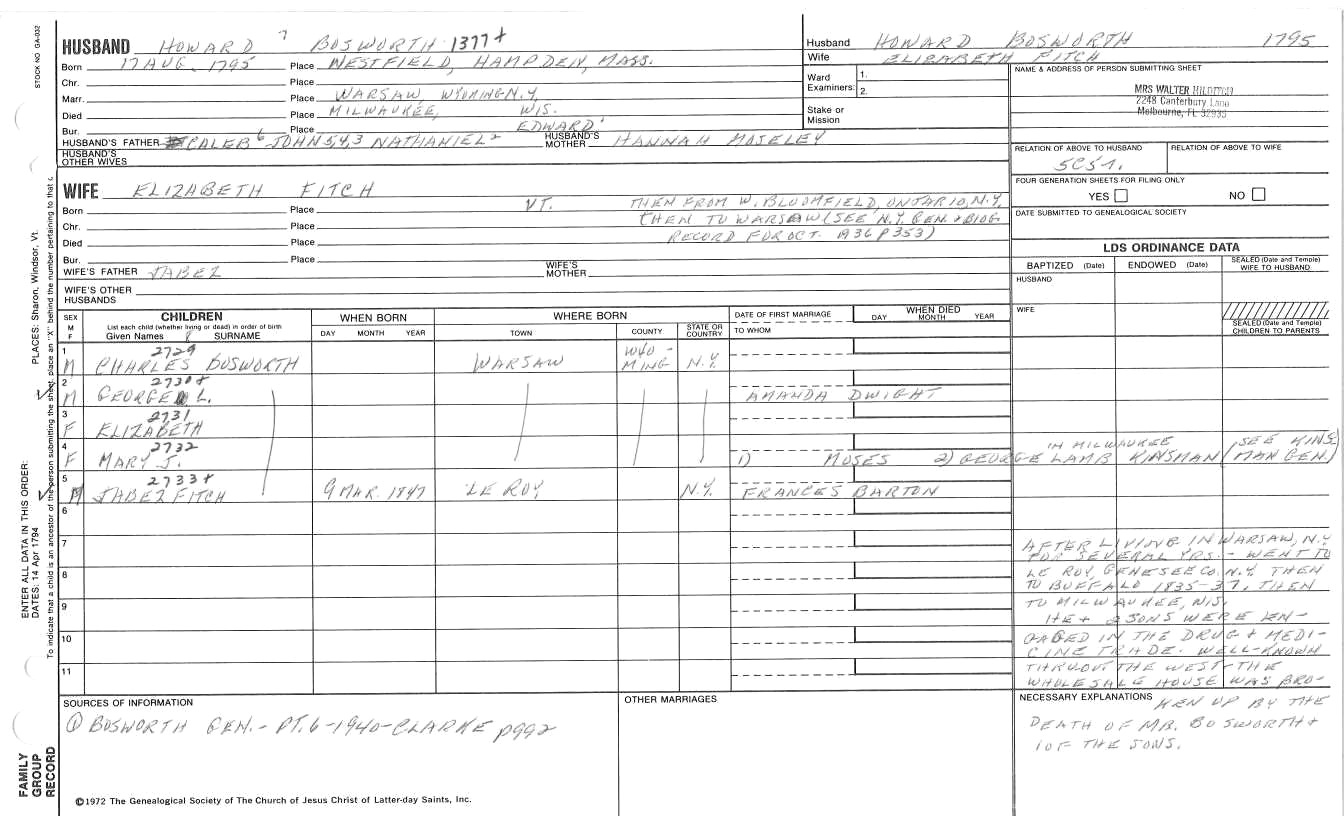 STOCK NO GA-032
HUSBAND HOWARD 7 BOSWORTH 1377+
Born 17 AUG. 1795 Place WESTFIELD, HAMPDEN, MASS.
Chr. Place
Marr. Place WARSAW, WYOMING N.Y.
Died Place MILWAUKEE, WIS.
Bur. Place
HUSBAND'S FATHER CALEB 6 JOHN 5,4,3 NATHANIEL 2 EDWARD 1 HUSBAND'S MOTHER HANNAH MOSELEY
HUSBAND'S OTHER WIVES
Husband HOWARD BOSWORTH 1795
Wife ELIZABETH FITCH
Ward Examiners: 1. 2.
Stake or Mission
NAME & ADDRESS OF PERSON SUBMITTING SHEET
MRS WALTER
2248 Canterbury Lane
Melbourne, FL 32935
RELATION OF ABOVE TO HUSBAND RELATION OF ABOVE TO WIFE
FOUR GENERATION SHEETS FOR FILING ONLY
YES NO
DATE SUBMITTED TO GENEALOGICAL SOCIETY
WIFE ELIZABETH FITCH
Born Place VT. THEN FROM W. BLOOMFIELD, ONTARIO, N.Y.
Chr. Place THEN TO WARSAW (SEE N.Y. GEN. + BIOG
Died Place RECORD FOR OCT. 1936 P353)
Bur. Place
WIFE'S FATHER JABEZ WIFE'S MOTHER
WIFE'S OTHER HUSBANDS
LDS ORDINANCE DATA
BAPTIZED (Date) ENDOWED (Date) SEALED (Date and Temple) WIFE TO HUSBAND
HUSBAND
WIFE
SEALED (Date and Temple) CHILDREN TO PARENTS
SEX M F CHILDREN WHEN BORN WHERE BORN DATE OF FIRST MARRIAGE WHEN DIED
List each child (whether living or dead) in order of birth
Given Names 8 SURNAME DAY MONTH YEAR TOWN COUNTY STATE OR COUNTRY TO WHOM DAY MONTH YEAR
1 2729
M CHARLES BOSWORTH WARSAW WYO-MING N.Y.
2 2730+
M GEORGE L. AMANDA DWIGHT
3 2731
F ELIZABETH
4 2732
F MARY J. 1) MOSES 2) GEORGE LAMB KINSMAN IN MILWAUKEE (SEE KINSMAN GEN.)
5 2733+
M JABEZ FITCH 9 MAR. 1847 LE ROY N.Y. FRANCES BARTON
6
7
8
9
10
11
AFTER LIVING IN WARSAW, N.Y.
FOR SEVERAL YRS. - WENT TO
LE ROY, GENESEE CO. N.Y. THEN
TO BUFFALO 1835-37, THEN
TO MILWAUKEE, WIS.
HE + 2 SONS WERE EN-
GAGED IN THE DRUG + MEDI-
CINE TRADE. WELL-KNOWN
THRUOUT THE WEST - THE
WHOLESALE HOUSE WAS BRO-
SOURCES OF INFORMATION
① BOSWORTH GEN. - PT. 6 - 1940 - CLARKE p992
OTHER MARRIAGES
NECESSARY EXPLANATIONS
KEN UP BY THE
DEATH OF MR. BOSWORTH +
1 OF THE SONS.
©1972 The Genealogical Society of The Church of Jesus Christ of Latter-day Saints, Inc.
PLACES: Sharon, Windsor, Vt.
ENTER ALL DATA IN THIS ORDER:
DATES: 14 Apr 1794
To indicate that a child is an ancestor of the person submitting the sheet, place an "X" behind the number pertaining to that c
FAMILY GROUP RECORD